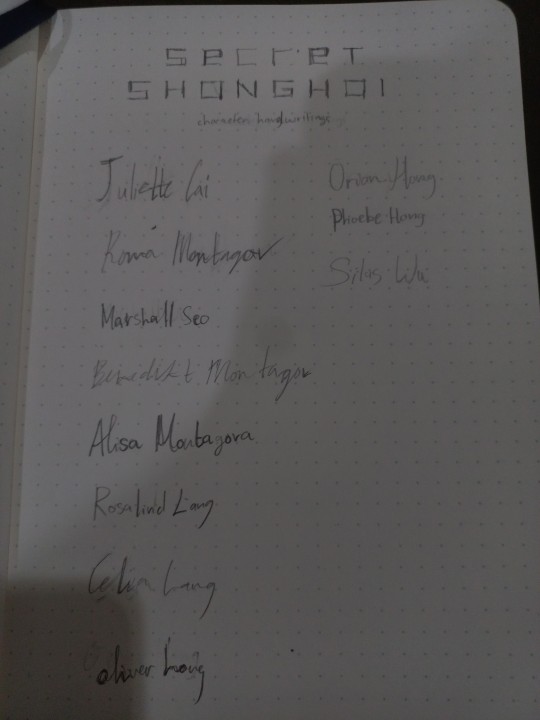 secret
SHONGHOI
character handwritings
Juliette Cai
Roma Montagov
Marshall Seo
Benedikt Montagov
Alisa Montagova
Rosalind Lang
Celia Lang
oliver hong
Orion Hong
Phoebe Hong
Silas Wu